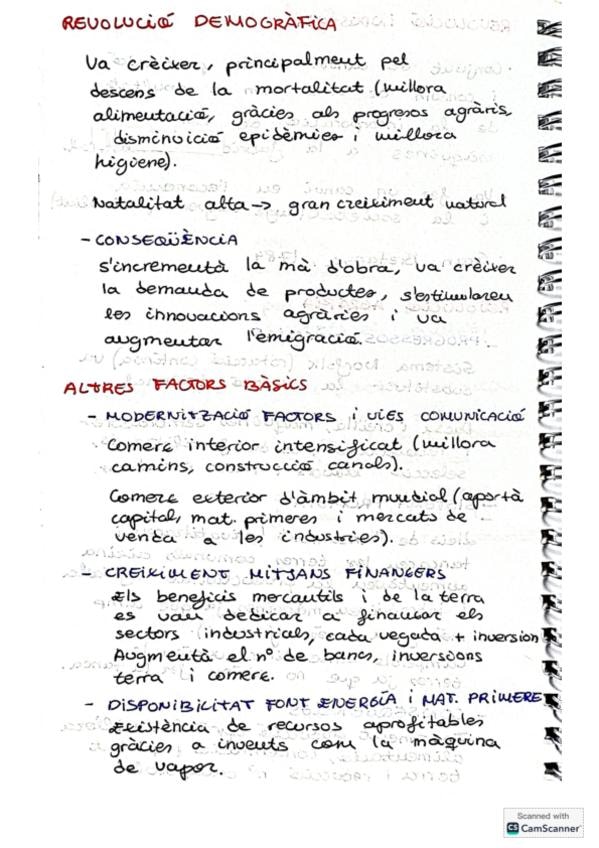 REVOLUCIÓ DEMOGRÀFICA
Va créixer, principalment pel
descens de la mortalitat (millora
alimentació, gràcies als progresos agràris,
disminuició epidèmies i millora
higiene).
Natalitat alta -> gran creiximent natural
- CONSEQÜÈNCIA
s'incrementà la mà d'obra, va créixer
la demanda de productes, s'estimularen
les innovacions agràries i va
augmentar l'emigració.
ALTRES FACTORS BÀSICS
- MODERNITZACIÓ FACTORS i VIES COMUNICACIÓ
Comerç interior intensificat (millora
camins, construcció canals).
Comerç exterior d'àmbit mundial (aportà
capital, mat. primeres i mercats de
venda a les industries).
- CREIXIMENT MITJANS FINANGERS
Els beneficis mercantils i de la terra
es van dedicar a financar els
sectors industrials, cada vegada + inversion
Augmentà el nº de bancs, inversions
terra i comerç.
- DISPONIBILITAT FONT ENERGÍA i MAT. PRIMERE
Existència de recursos aprofitables
gràcies a invents com la màquina
de vapor.
Scanned with
CS CamScanner